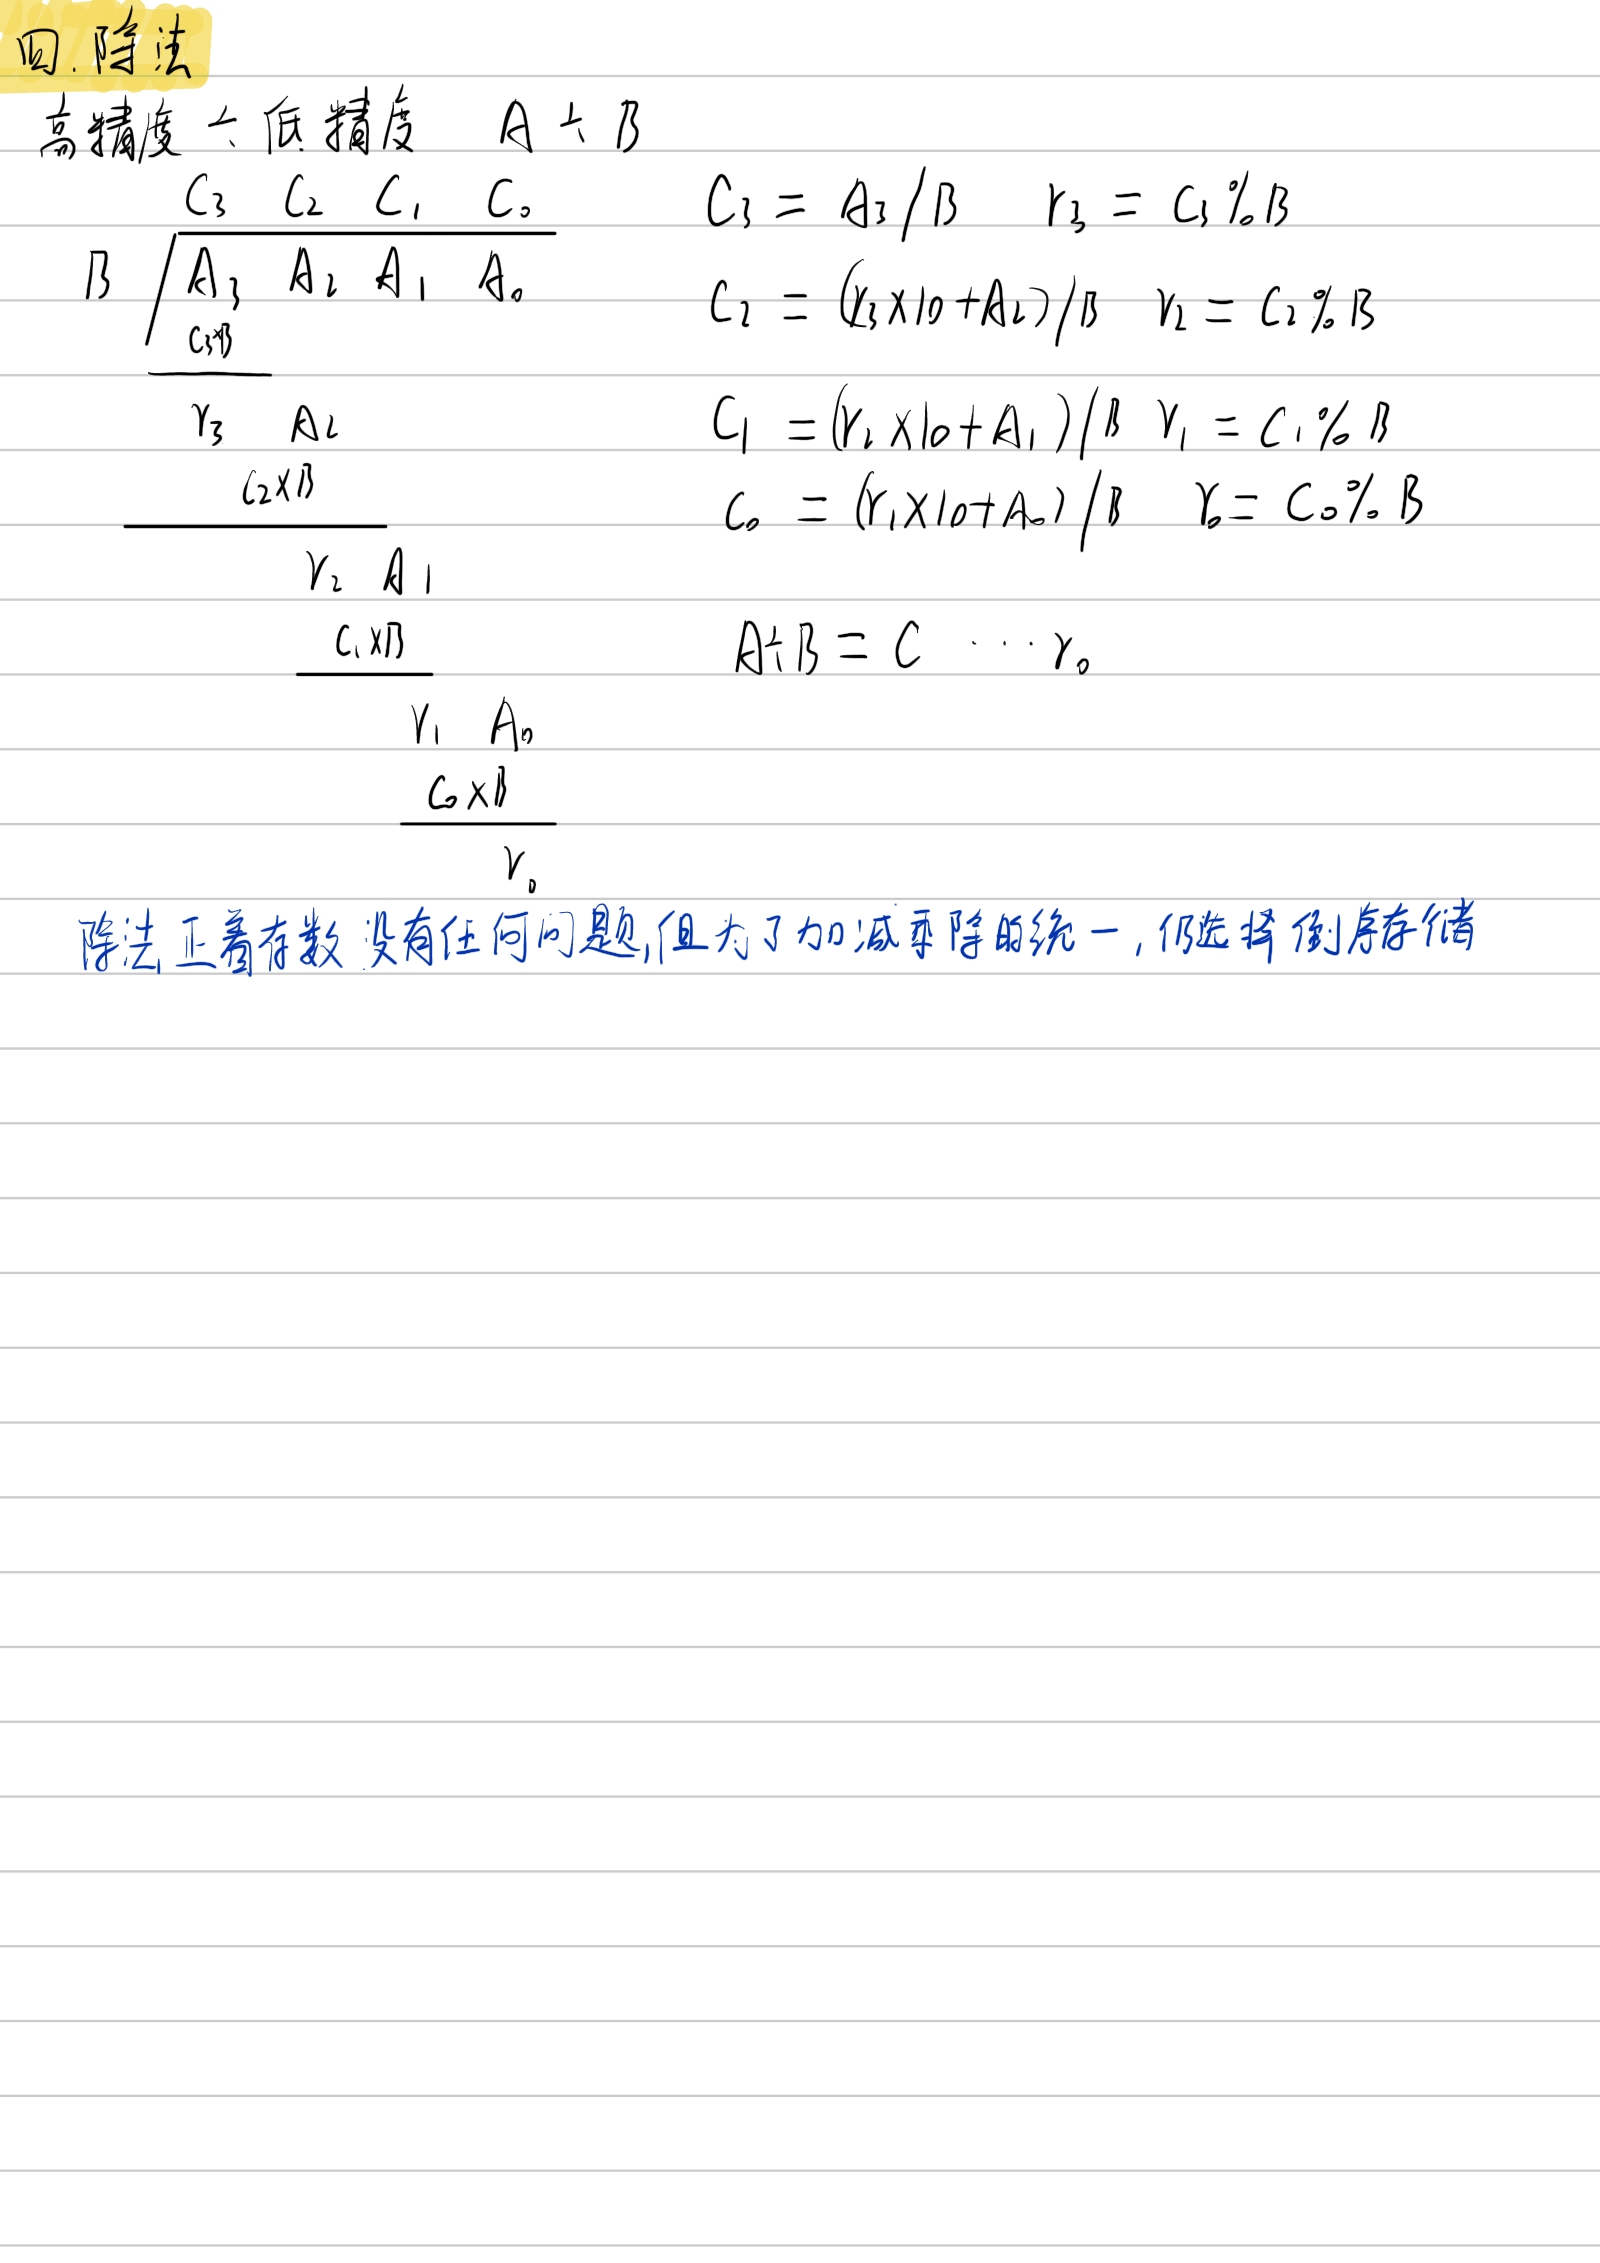 四.除法
高精度÷低精度 A÷B
C₃ C₂ C₁ C₀
B A₃ A₂ A₁ A₀
C₃×B
r₃ A₂
C₂×B
r₂ A₁
C₁×B
r₁ A₀
C₀×B
r₀
C₃ = A₃/B r₃ = C₃%B
C₂ = (r₃×10+A₂)/B r₂ = C₂%B
C₁ = (r₂×10+A₁)/B r₁ = C₁%B
C₀ = (r₁×10+A₀)/B r₀ = C₀%B
A÷B = C ⋯r₀
除法正着存数没有任何问题,但为了加减乘除的统一,仍选择倒序存储